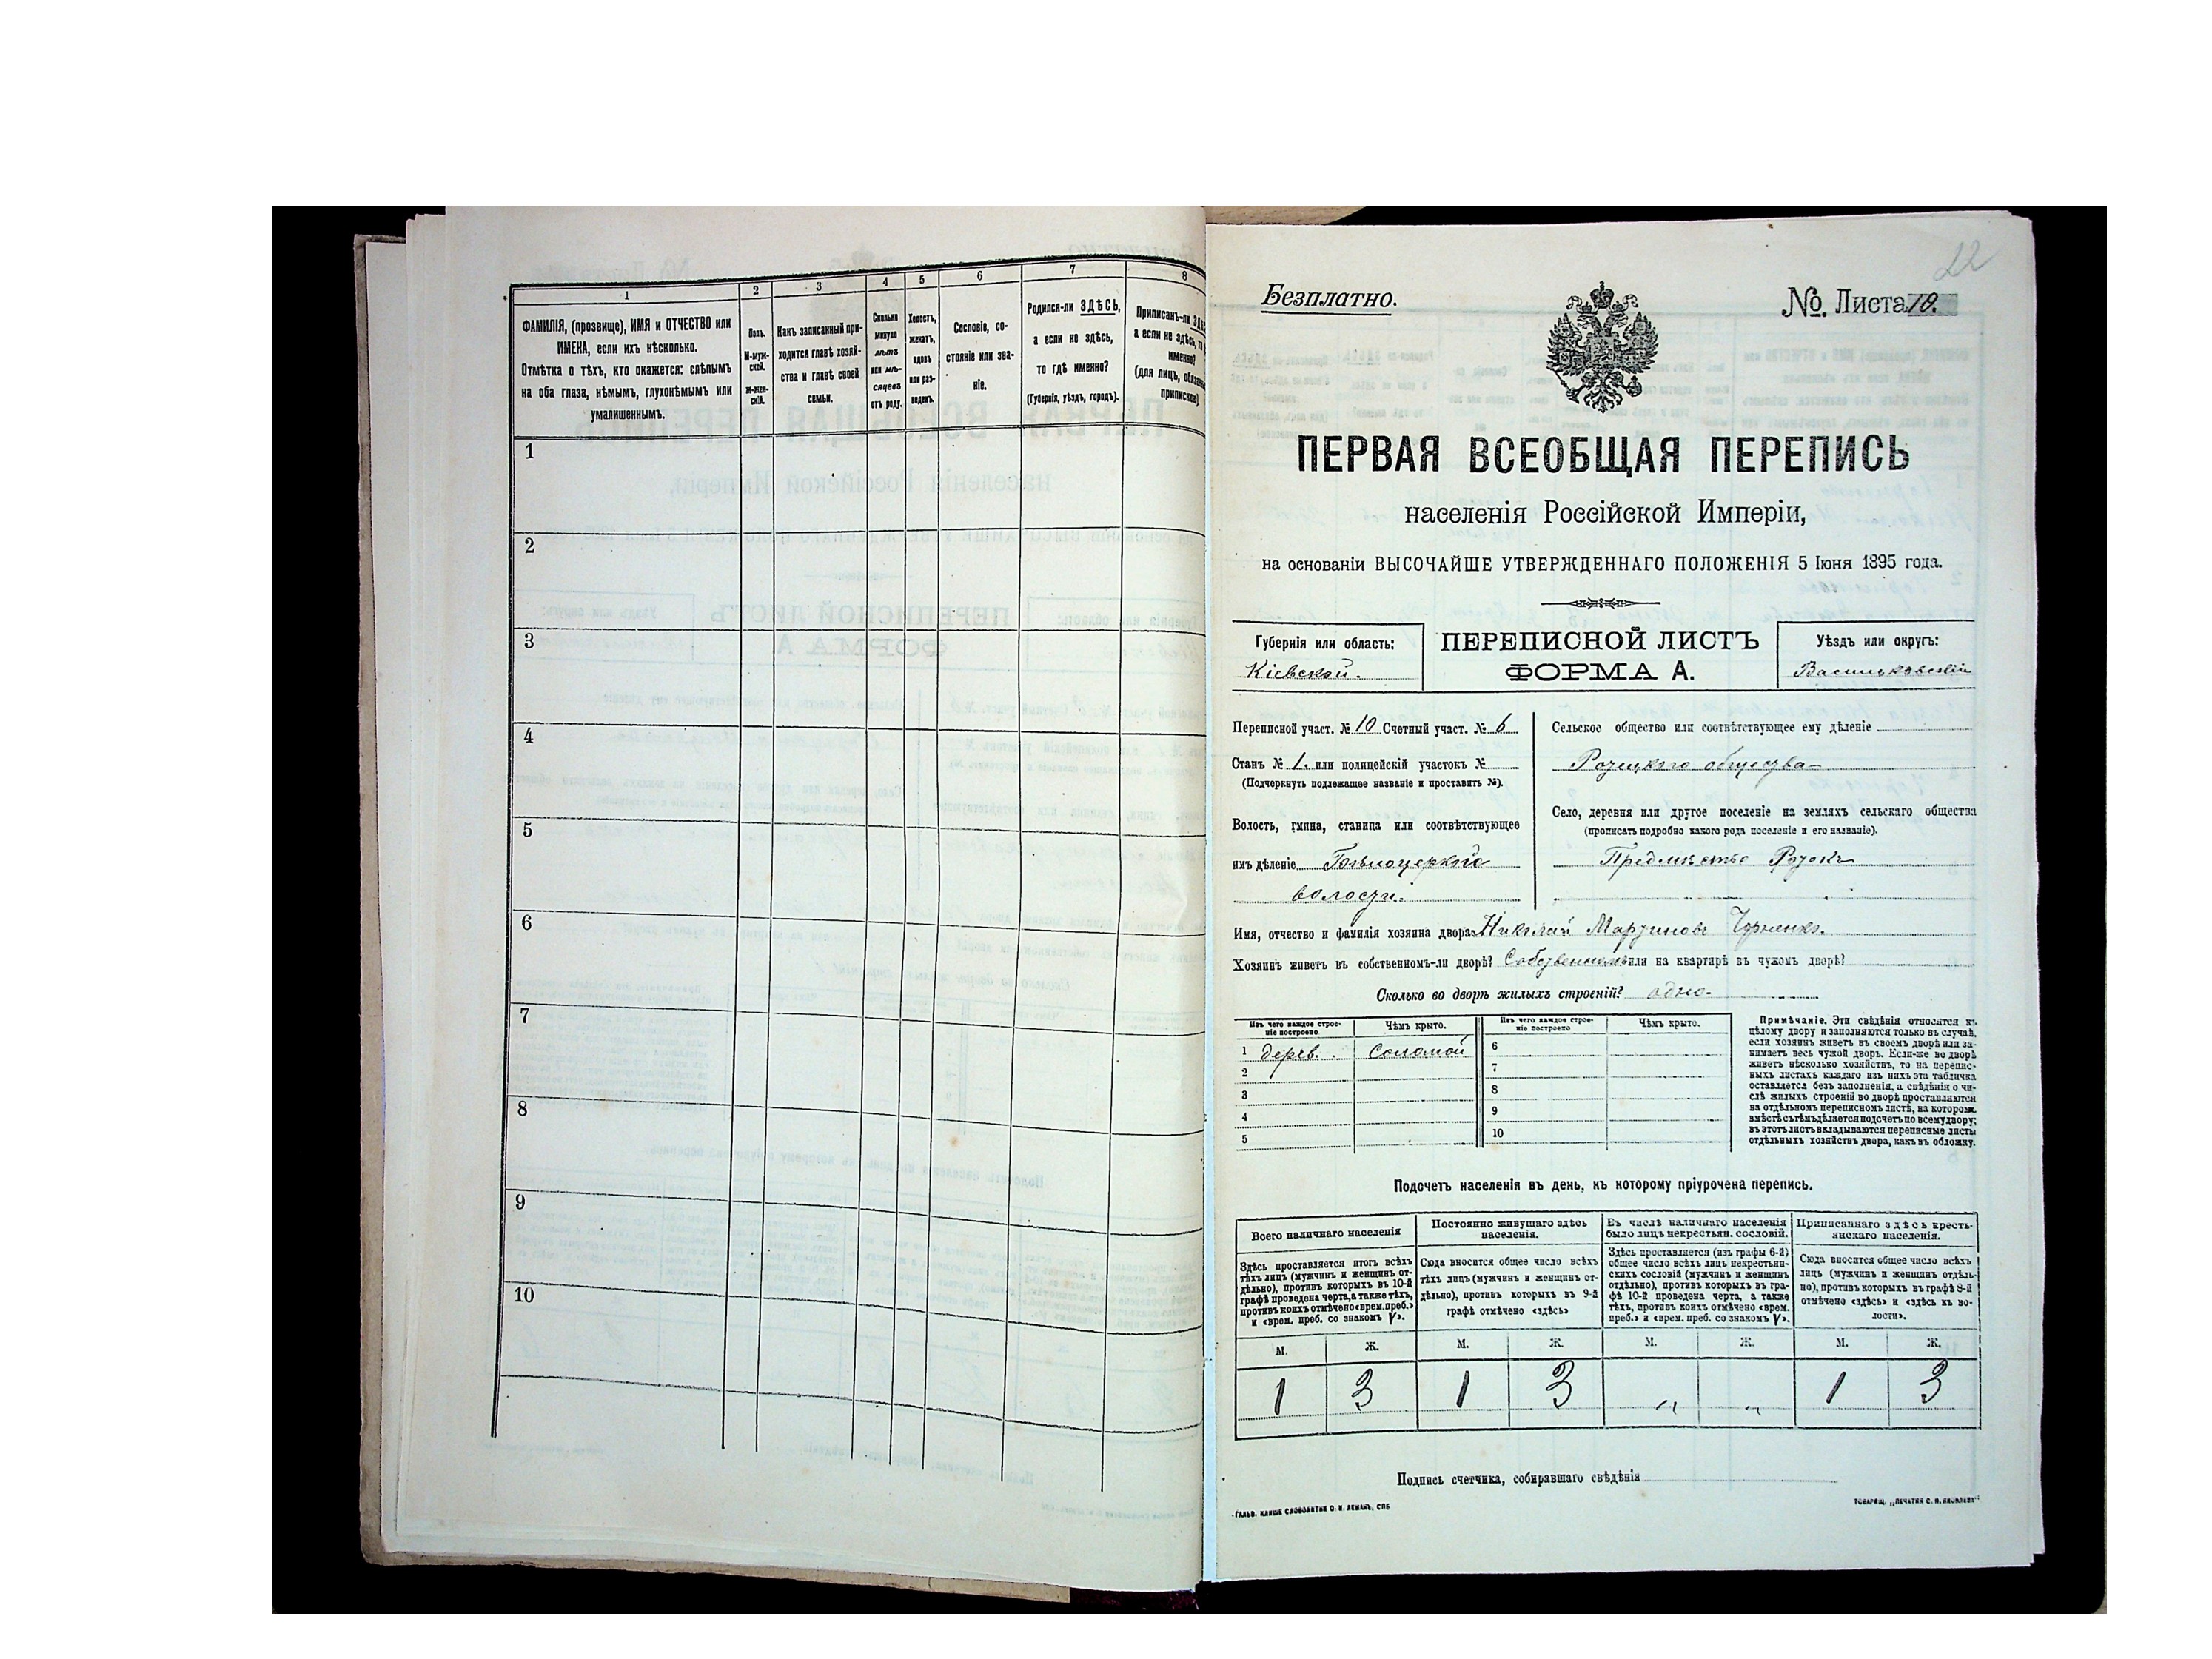 1 2 3 4 5 6 7 8
ФАМИЛІЯ, (прозвище), ИМЯ и ОТЧЕСТВО или
ИМЕНА, если ихъ нѣсколько.
Отмѣтка о тѣхъ, кто окажется: слѣпымъ
на оба глаза, нѣмымъ, глухонѣмымъ или
умалишеннымъ.
Полъ.
М-муж-
ской.
Ж-жен-
скій.
Какъ записанный при-
ходится главѣ хозяй-
ства и главѣ своей
семьи.
Сколько
минуло
лѣтъ
или мѣ-
сяцевъ
отъ роду.
Холостъ,
женатъ,
вдовъ
или раз-
веденъ.
Сословіе, со-
стояніе или зва-
ніе.
Родился-ли ЗДѢСЬ,
а если не здѣсь,
то гдѣ именно?
(Губернія, уѣздъ, городъ).
Приписанъ-ли
а если не здѣсь,
именно?
(для лицъ,
припискѣ)
1
2
3
4
5
6
7
8
9
10
22
Безплатно.
№ Листа 10.
ПЕРВАЯ ВСЕОБЩАЯ ПЕРЕПИСЬ
населенія Россійской Имперіи,
на основаніи ВЫСОЧАЙШЕ УТВЕРЖДЕННАГО ПОЛОЖЕНІЯ 5 Іюня 1895 года.
Губернія или область:
Кіевской.
ПЕРЕПИСНОЙ ЛИСТЪ
ФОРМА А.
Уѣздъ или округъ:
Васильковскій
Переписной участ. № 10 Счетный участ. № 6
Станъ № 1. или полицейскій участокъ №
(Подчеркнуть подлежащее названіе и проставить №).
Волость, гмина, станица или соотвѣтствующее
имъ дѣленіе
волости.
Сельское общество или соотвѣтствующее ему дѣленіе
общества
Село, деревня или другое поселеніе на земляхъ сельскаго общества
(прописать подробно какого рода поселеніе и его названіе).
Предмѣстье
Имя, отчество и фамилія хозяина двора Николай Мартиновъ
Хозяинъ живетъ въ собственномъ-ли дворѣ? Собственномъ или на квартирѣ въ чужомъ дворѣ?
Сколько во дворѣ жилыхъ строеній? одно
Изъ чего каждое строе-
ніе построено
Чѣмъ крыто.
Изъ чего каждое строе-
ніе построено
Чѣмъ крыто.
1 дерев. Соломой 6
2 7
3 8
4 9
5 10
Примѣчаніе. Эти свѣдѣнія относятся къ
цѣлому двору и заполняются только въ случаѣ,
если хозяинъ живетъ въ своемъ дворѣ или за-
нимаетъ весь чужой дворъ. Если-же во дворѣ
живетъ нѣсколько хозяйствъ, то на перепис-
ныхъ листахъ каждаго изъ нихъ эта табличка
оставляется безъ заполненія, а свѣдѣнія о чи-
слѣ жилыхъ строеній во дворѣ проставляются
на отдѣльномъ переписномъ листѣ, на которомъ
вмѣстѣ съ тѣмъ дѣлается подсчетъ по всему двору;
въ этотъ листъ вкладываются переписные листы
отдѣльныхъ хозяйствъ двора, какъ въ обложку.
Подсчетъ населенія въ день, къ которому пріурочена перепись.
Всего наличнаго населенія
Здѣсь проставляется итогъ всѣхъ
тѣхъ лицъ (мужчинъ и женщинъ от-
дѣльно), противъ которыхъ въ 10-й
графѣ проведена черта, а также тѣхъ,
противъ коихъ отмѣчено «врем. преб.»
и «врем. преб. со знакомъ V».
Постоянно живущаго здѣсь
населенія.
Сюда вносится общее число всѣхъ
тѣхъ лицъ (мужчинъ и женщинъ от-
дѣльно), противъ которыхъ въ 9-й
графѣ отмѣчено «здѣсь»
Въ числѣ наличнаго населенія
было лицъ некрестьян. сословій.
Здѣсь проставляется (изъ графы 6-й)
общее число всѣхъ лицъ некрестьян-
скихъ сословій (мужчинъ и женщинъ
отдѣльно), противъ которыхъ въ гра-
фѣ 10-й проведена черта, а также
тѣхъ, противъ коихъ отмѣчено «врем.
преб.» и «врем. преб. со знакомъ V».
Приписаннаго здѣсь кресть-
янскаго населенія.
Сюда вносится общее число всѣхъ
лицъ (мужчинъ и женщинъ отдѣль-
но), противъ которыхъ въ графѣ 8-й
отмѣчено «здѣсь» и «здѣсь къ во-
лости».
М. Ж. М. Ж. М. Ж. М. Ж.
1 3 1 3 „ „ 1 3
Подпись счетчика, собиравшаго свѣдѣнія
ГАЛЬВ. КЛИШЕ СЛОВОЛИТНИ О. И. ЛЕМАНЪ, СПБ
ТОВАРИЩ. „ПЕЧАТНЯ С. П. ЯКОВЛЕВА"